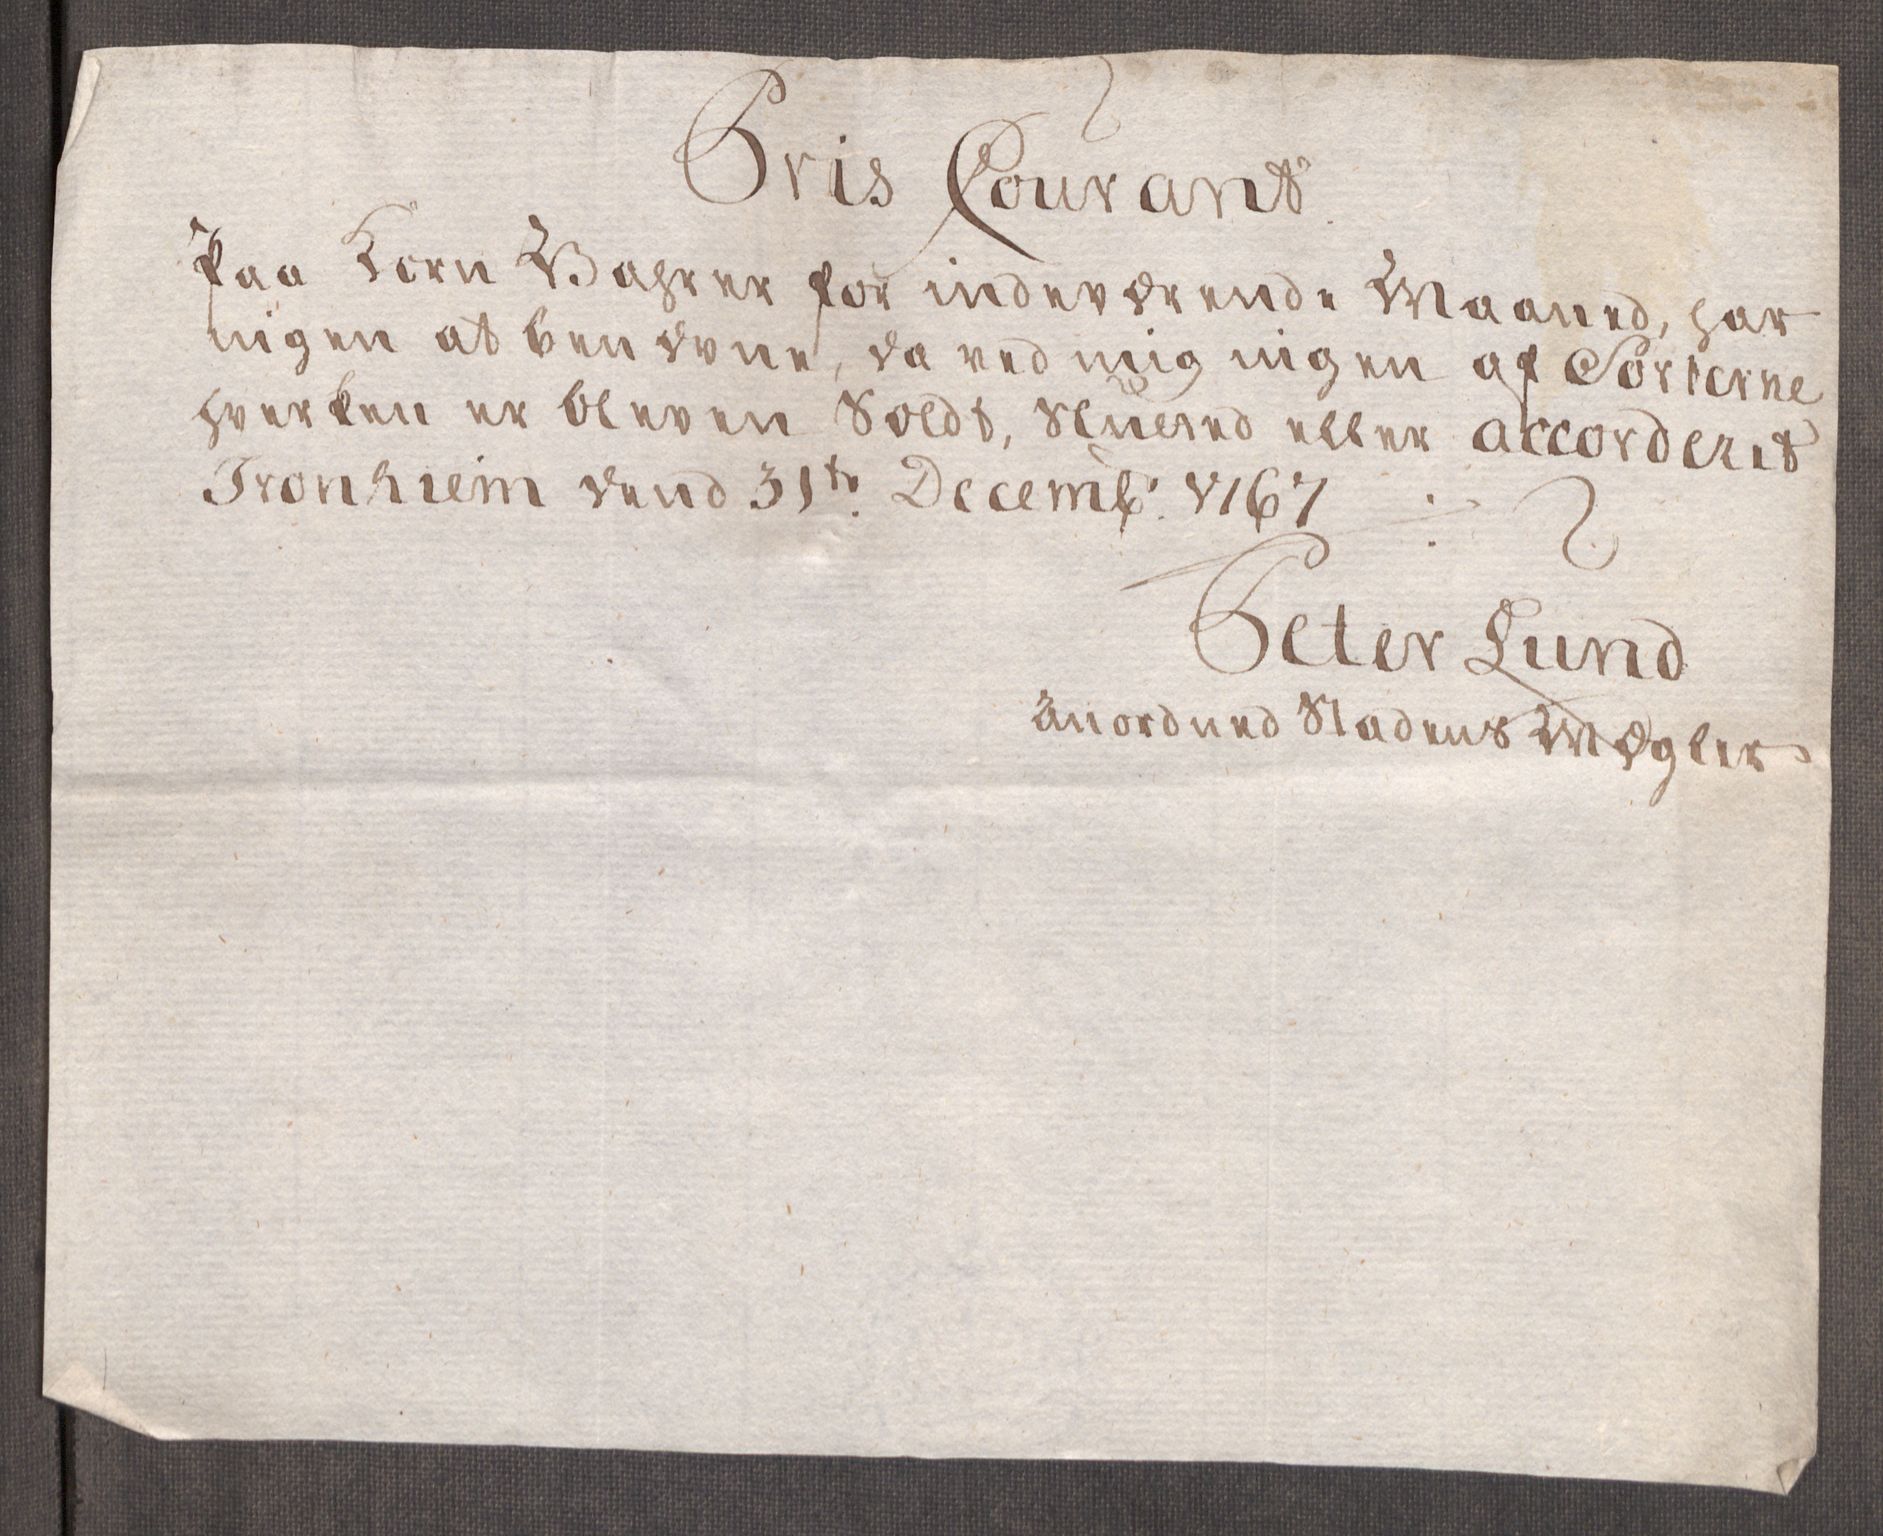 Pris Courant
Paa Korn Wahrer for indeværende Maaned, har
ingen at benævne, da ved mig ingen af Sorterne
hverken er bleven Soldt, Slutted eller accorderet
Tronhiem dend 31te Decembr. 1767
Peter Lund
Anordned Stadens Mægler